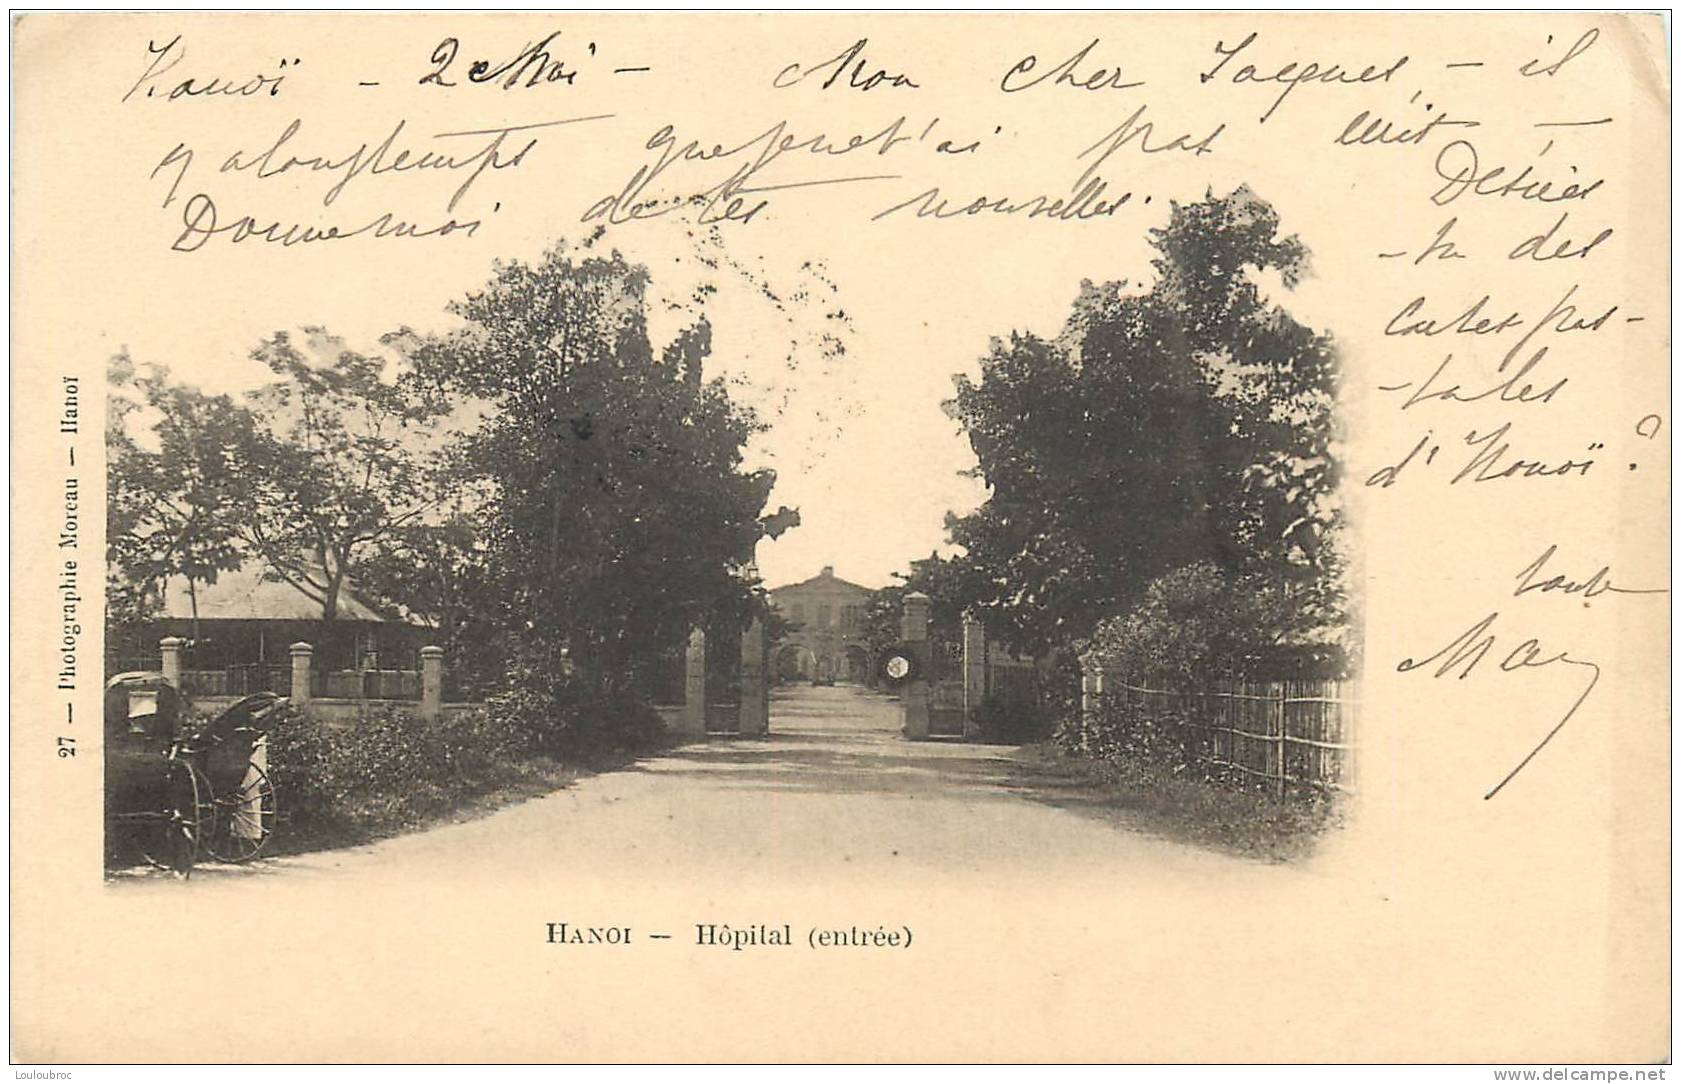 Hanoï - 2 Mai - Mon cher Jacques, - il
y a longtemps que je ne t'ai pas écrit -
Donne moi de tes nouvelles. Désires
-tu des
cartes pos-
-tales
d'Hanoï ?
27 — Photographie Moreau — Hanoï
HANOI — Hôpital (entrée)
Louloubroc
www.delcampe.net